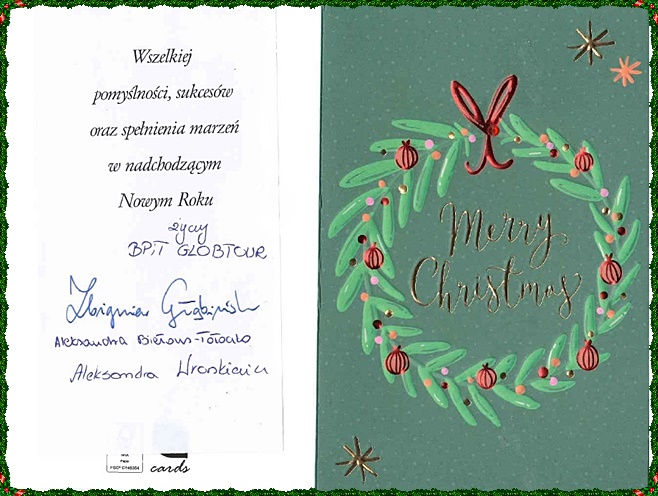 Wszelkiej
pomyślności, sukcesów
oraz spełnienia marzeń
w nadchodzącym
Nowym Roku
życzy
BPiT GLOBTOUR
Zbigniew
Aleksandra
Aleksandra
cards
Merry
Christmas